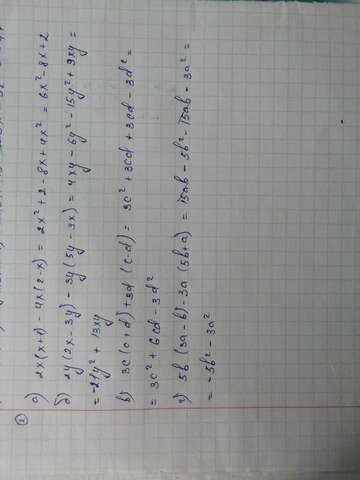 ②
а) 2x(x+1) - 4x(2-x) = 2x² + 2 - 8x + 4x² = 6x² - 8x + 2
б) 2y(2x - 3y) - 3y(5y - 3x) = 4xy - 6y² - 15y² + 9xy =
= -21y² + 13xy
в) 3c(c+d) + 3d(c-d) = 3c² + 3cd + 3cd - 3d² =
= 3c² + 6cd - 3d²
г) 5b(3a-b) - 3a(5b+a) = 15ab - 5b² - 15ab - 3a² =
= -5b² - 3a²